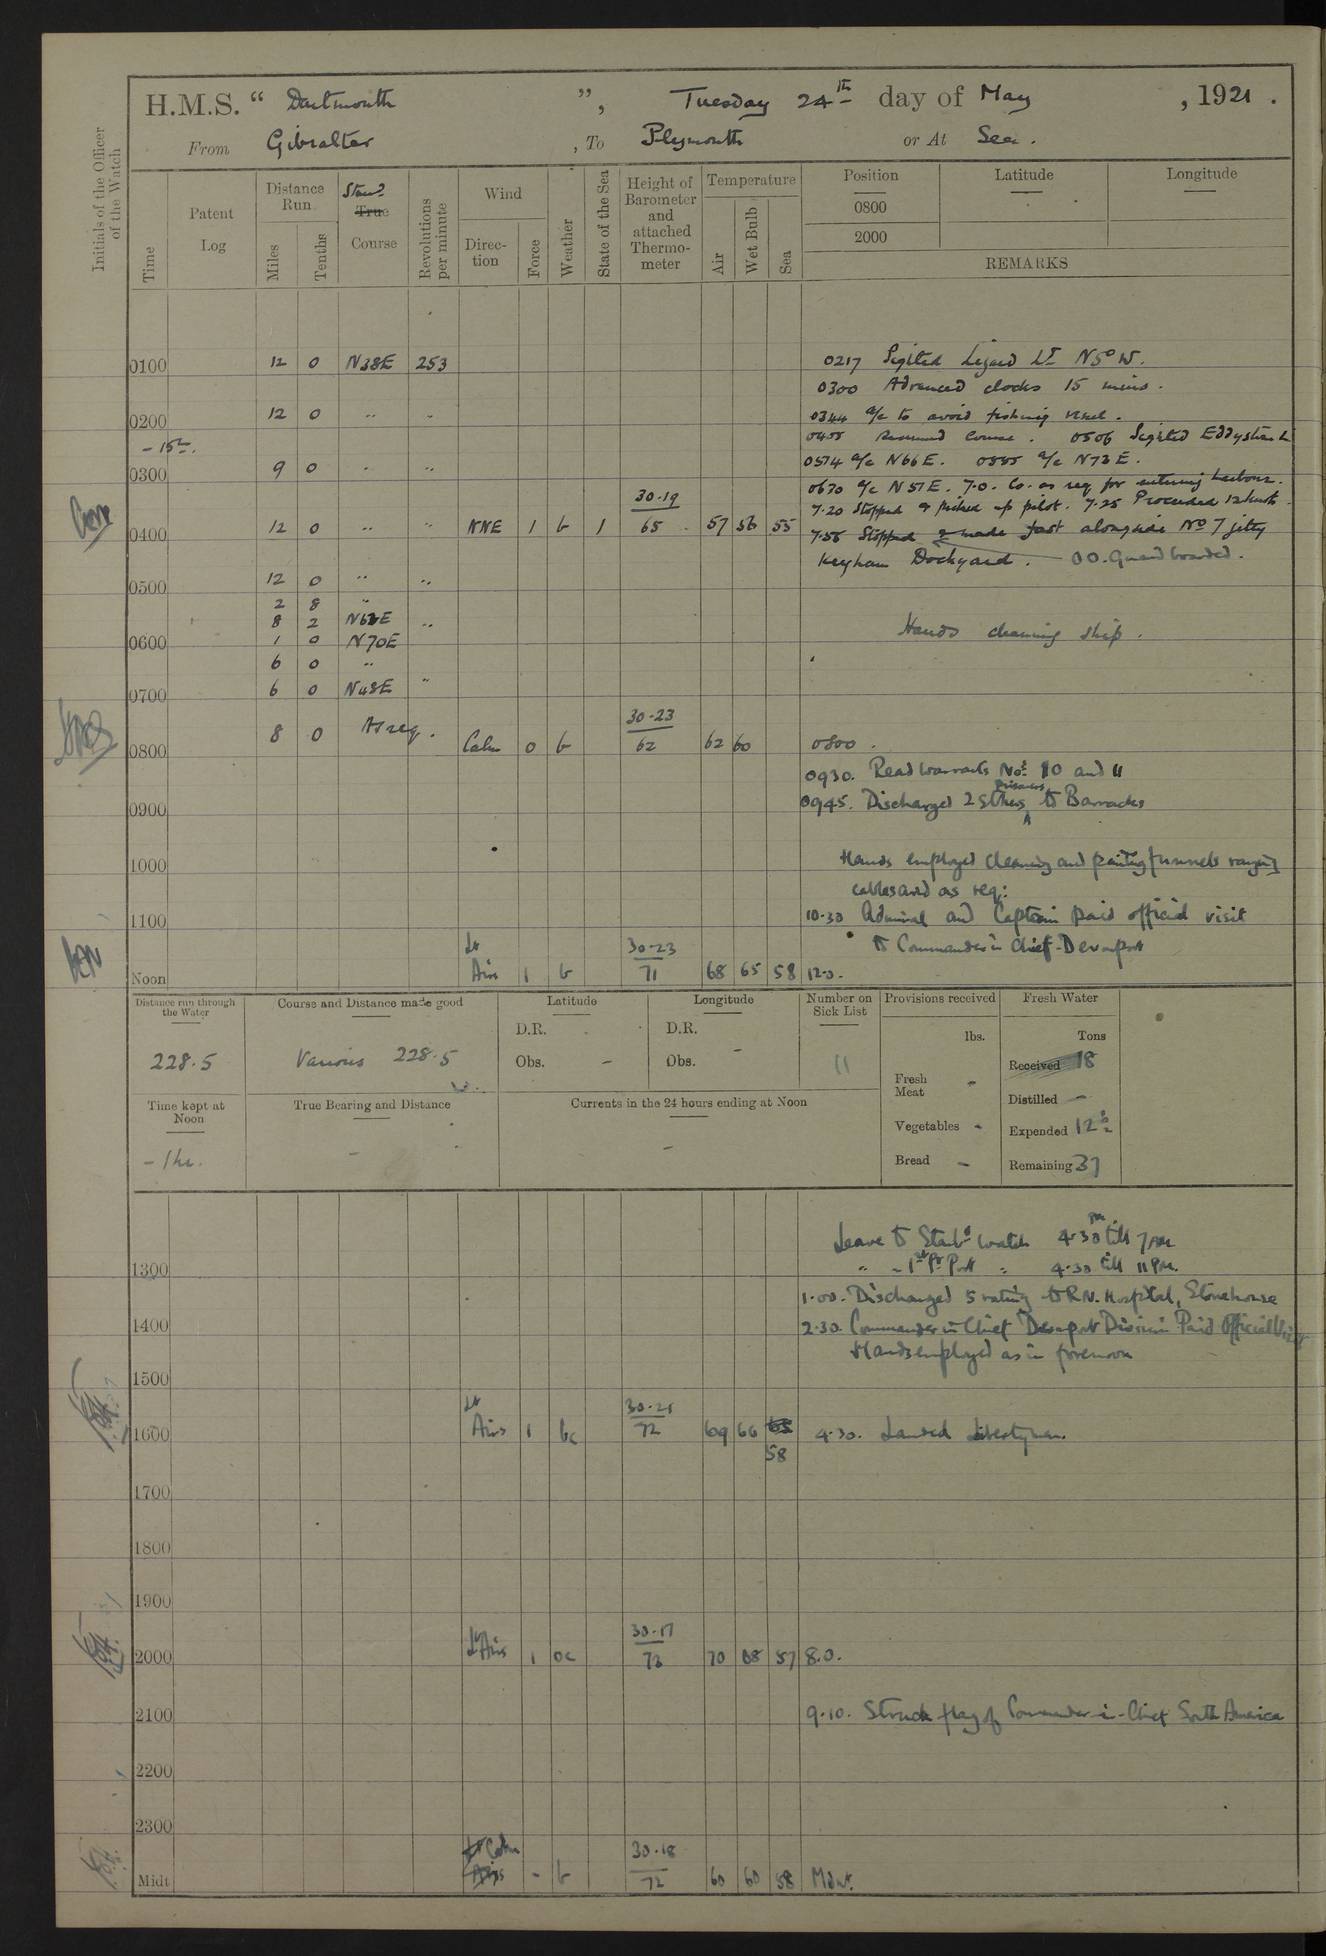 H.M.S. “ Dartmouth ”, Tuesday 24th day of May , 1921 .
From Gibralter , To Plymouth or At Sea .
Initials of the Officer of the Watch
Time
Patent Log
Distance Run
Miles
Tenths
Stand
True
Course
Revolutions per minute
Wind
Direc-tion
Force
Weather
State of the Sea
Height of Barometer and attached Thermo-meter
Temperature
Air
Wet Bulb
Sea
Position Latitude Longitude
0800
2000
REMARKS
0100 12 0 N38E 253
0217 Sighted Lizard Lt N5°W.
0300 Advanced clocks 15 mins.
0200 12 0 " "
0344 a/c to avoid fishing vessel.
- 15m.
resumed course. 0506 Sighted Eddystone Lt
0300 9 0 " "
0514 a/c N66E. a/c N73E.
0630 a/c N51E. 7.0. Co. as req for entering harbour.
7.20 Stopped & picked up pilot. 7.25 Proceeded 12 knots.
0400 12 0 " " NNE 1 b 1 30.19 65 57 56 55
7.55 Stopped & made fast alongside No 7 jetty
Keyham Dockyard. O.O. Guard boarded.
0500 12 0 " "
2 8 "
8 2 "
0600 1 0 N70E
Hands cleaning ship.
6 0 "
0700 6 0 N48E "
0800 8 0 As req. Calm 0 b 30.23 62 62 60
0800.
0930. Read Warrants Nos 10 and 11
0900
0945. Discharged 2 prisoners to Barracks
1000
Hands employed cleaning and painting funnels ranging
cables and as req:
1100
10.30 Admiral and Captain paid official visit
to Commander in Chief - Devonport
Noon Lt Airs 1 b 30.23 71 68 65 58 12.0.
Distance run through the Water
228.5
Course and Distance made good
Various 228.5
Latitude
D.R. -
Obs. -
Longitude
D.R.
Obs. -
Number on Sick List
11
Provisions received
lbs.
Fresh Meat -
Vegetables -
Bread -
Fresh Water
Tons
Received 18
Distilled -
Expended 12
Remaining 37
Time kept at Noon
- 1hr.
True Bearing and Distance
-
Currents in the 24 hours ending at Noon
-
Leave to Starbd watch 4.30 PM till 7 AM
" " 1st Pt Port " 4.30 till 11 PM.
1300
1.00. Discharged 5 rating to R.N. Hospital, Stonehouse
1400
2.30. Commander in Chief Devonport Division Paid Official Visit
Hands employed as in forenoon
1500
1600 Lt Airs 1 bc 30.21 72 69 66 65 58
4.30. Landed Libertymen.
1700
1800
1900
2000 Lt Airs 1 oc 30.17 73 70 68 57 8.0.
2100
9.10. Struck flag of Commander-in-Chief South America
2200
2300
Midt Lt Airs Calm - b 30.18 72 60 60 58 Mdnt.